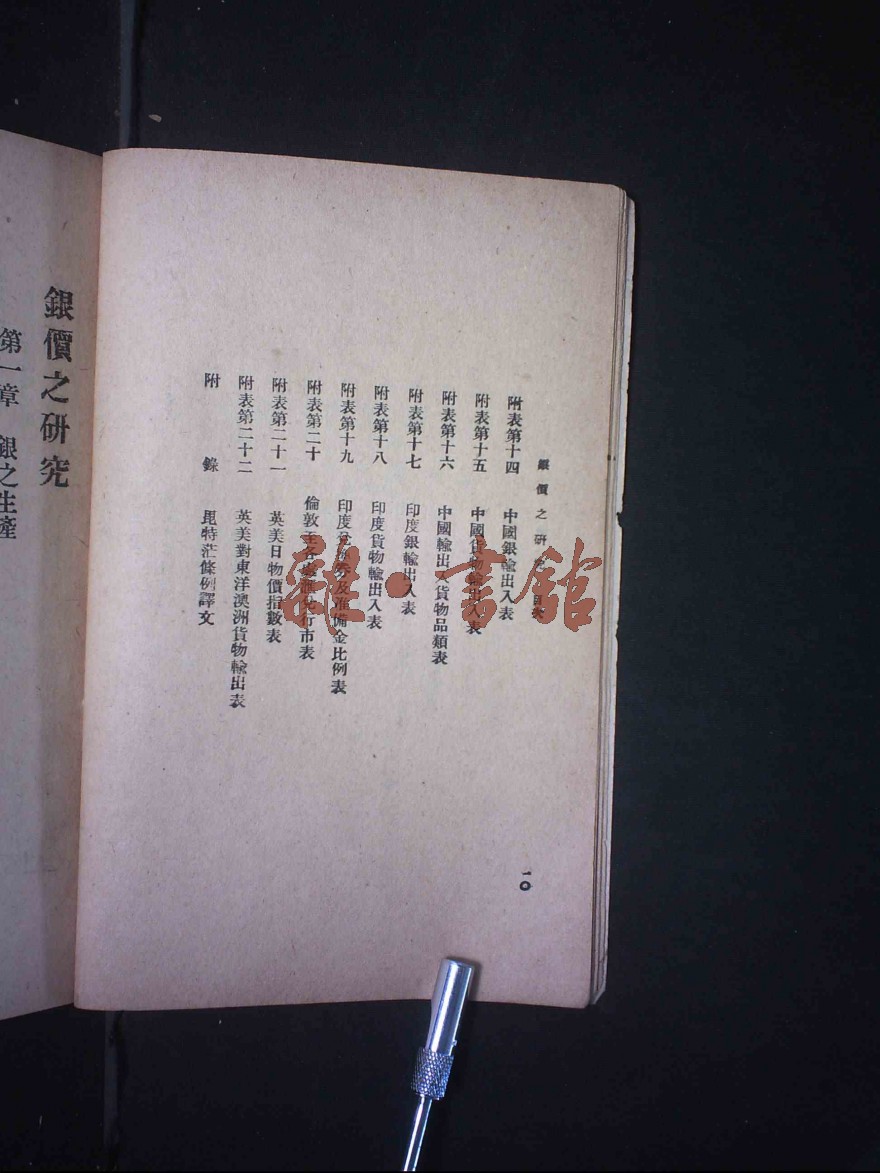 銀價之研究 目次
附表第十四 中國銀輸出入表
附表第十五 中國貨物輸出入表
附表第十六 中國輸出入貨物品類表
附表第十七 印度銀輸出入表
附表第十八 印度貨物輸出入表
附表第十九 印度兌換券及準備金比例表
附表第二十 倫敦至各處滙兌行市表
附表第二十一 英美日物價指數表
附表第二十二 英美對東洋澳洲貨物輸出表
附錄 毘特茫條例譯文
一〇
銀價之研究
第一章 銀之生產
雜·書館